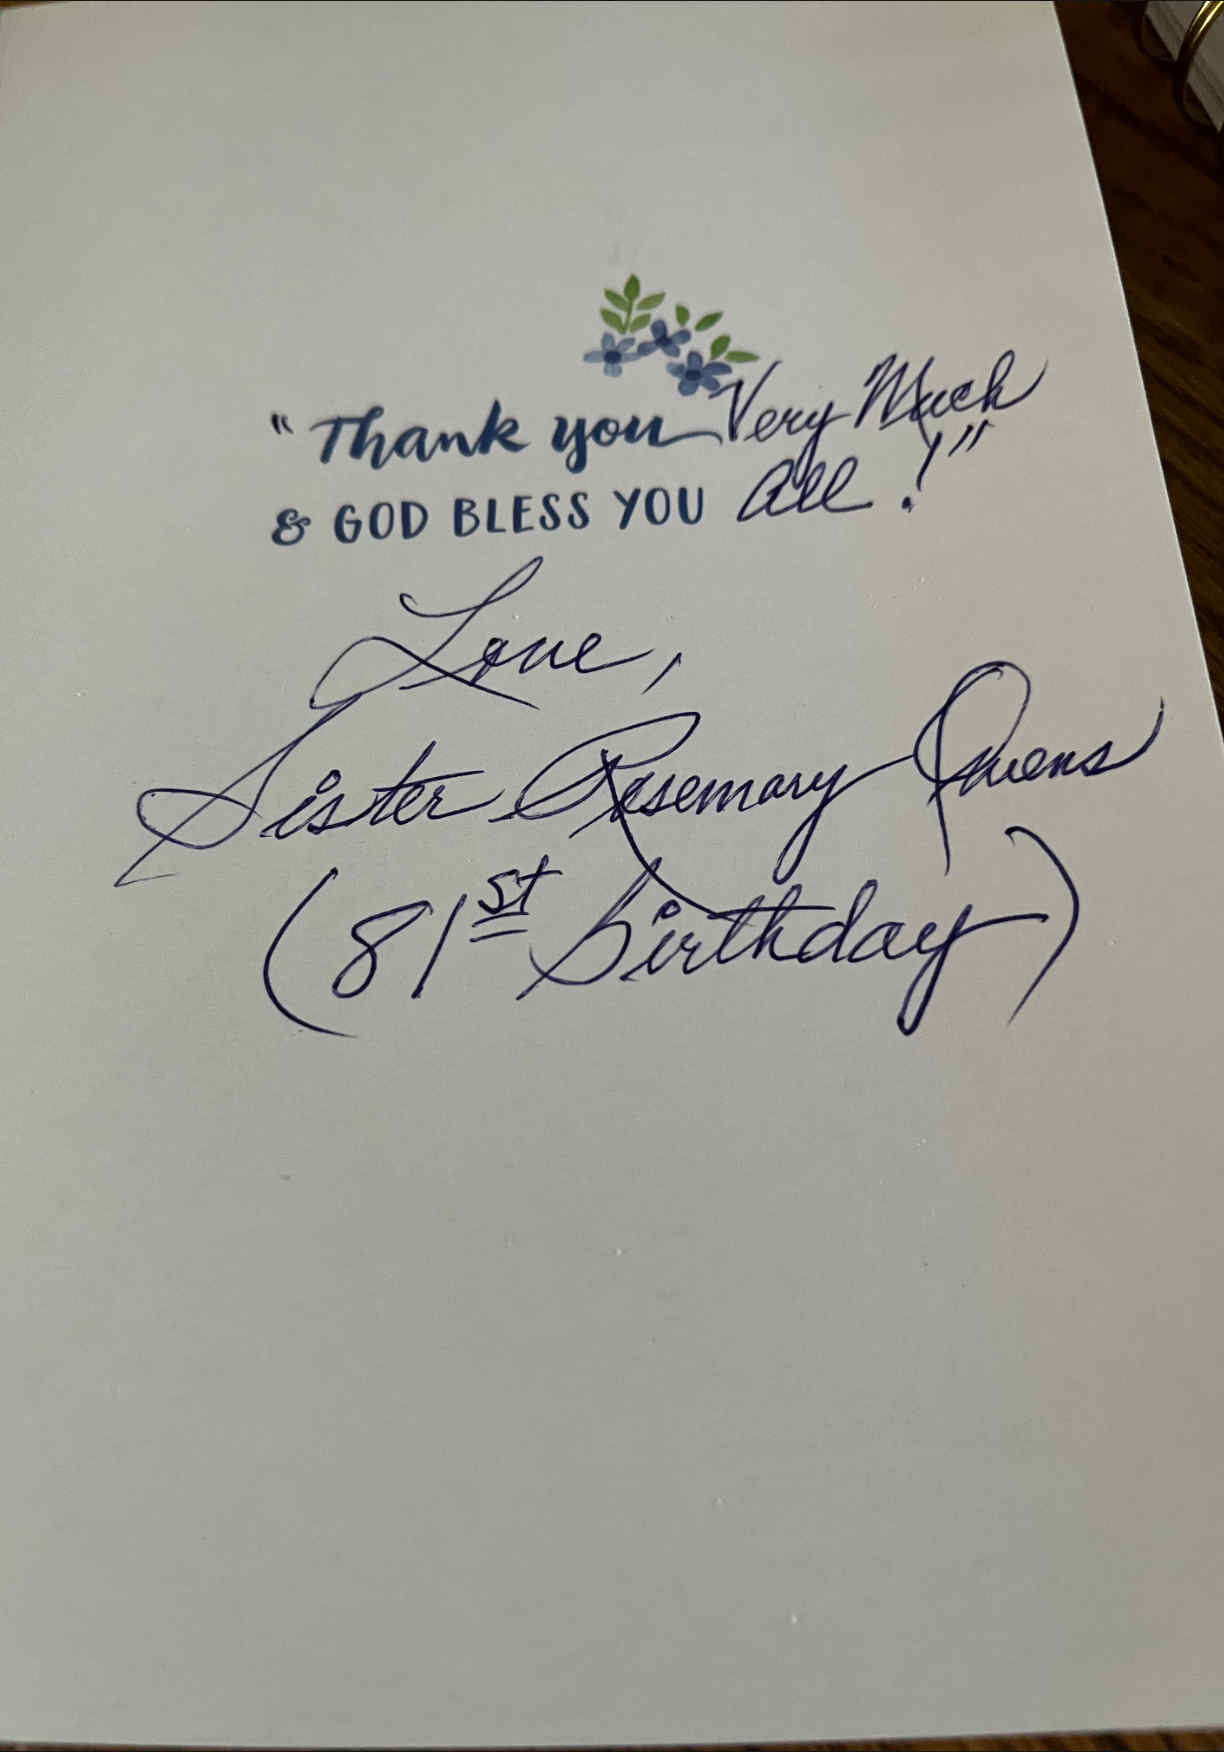 "Thank you Very Much
& GOD BLESS YOU all!"
Love,
Sister Rosemary Owens
(81st birthday)